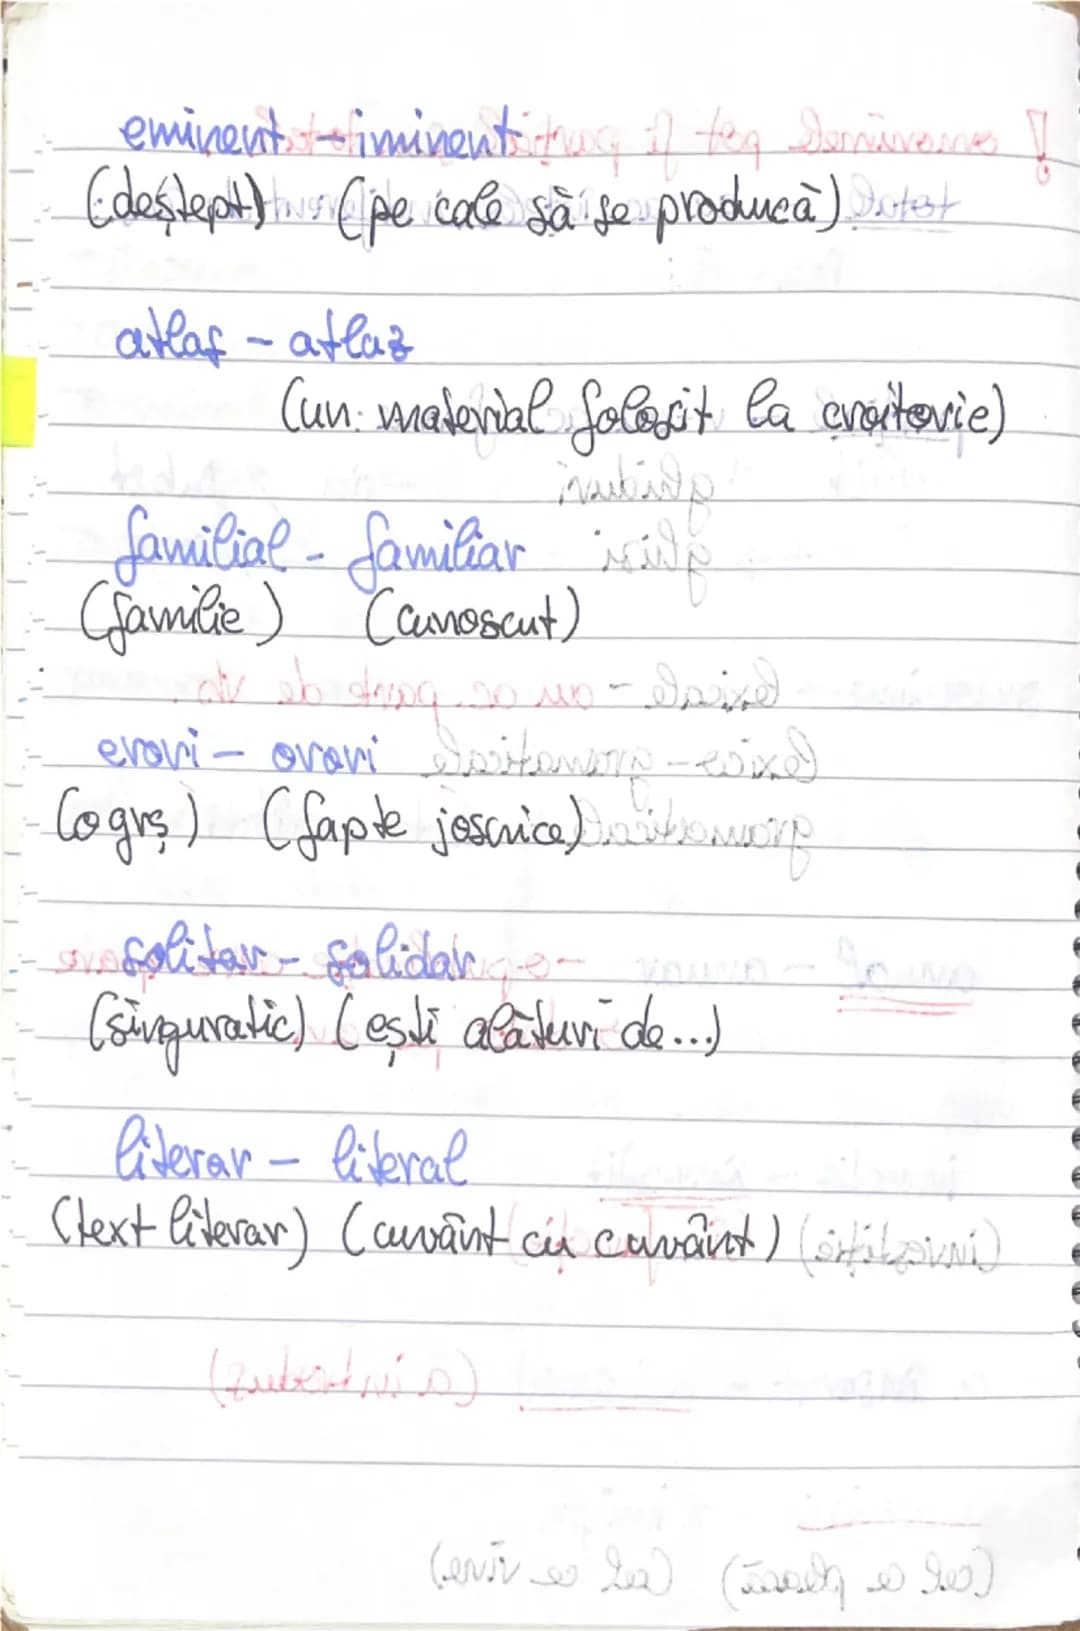 eminent - iminent
(deștept) (pe cale să se producă)
atlas - atlaz
(un material folosit la croitorie)
familial - familiar
(familie) (cunoscut)
erori - orori
(o grș) (fapte josnice)
solitar - solidar
(singuratic) (ești alături de...)
literar - literal
(text literar) (cuvânt cu cuvânt)